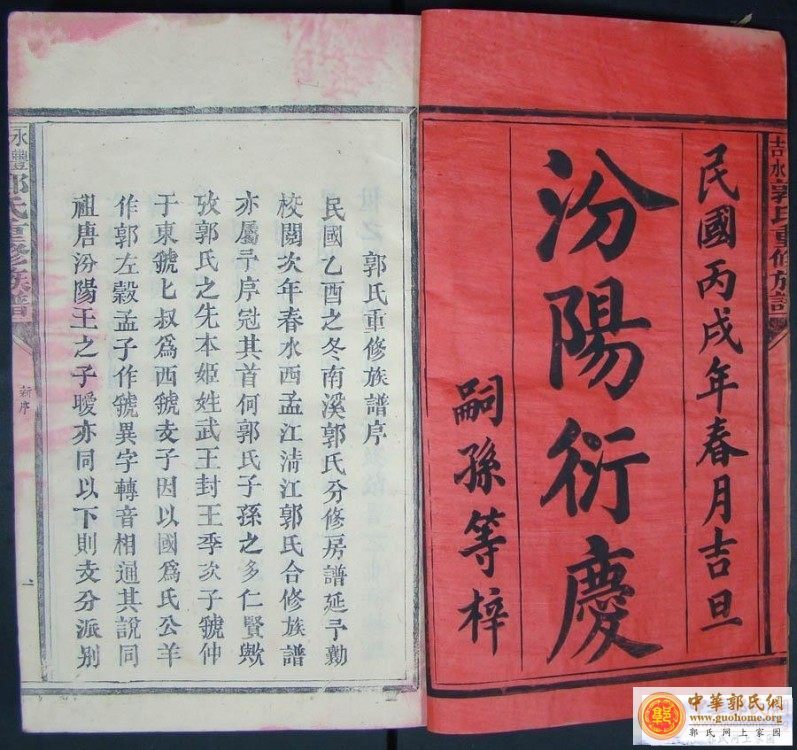 吉水郭氏重修族譜
民國丙戌年春月吉旦
汾陽衍慶
嗣孫等梓
郭氏重修族譜序
民國乙酉之冬南溪郭氏分修房譜延予勷
校閱次年春水西孟江清江郭氏合修族譜
亦屬予序冠其首何郭氏子孫之多仁賢歟
攷郭氏之先本姬姓武王封王季次子虢仲
于東虢匕叔爲西虢支子因以國爲氏公羊
作郭左穀孟子作虢異字轉音相通其說同
祖唐汾陽王之子曖亦同以下則支分派別
永豐郭氏重修族譜
新序
一
中華郭氏網
www.guohome.org
郭氏网上家园